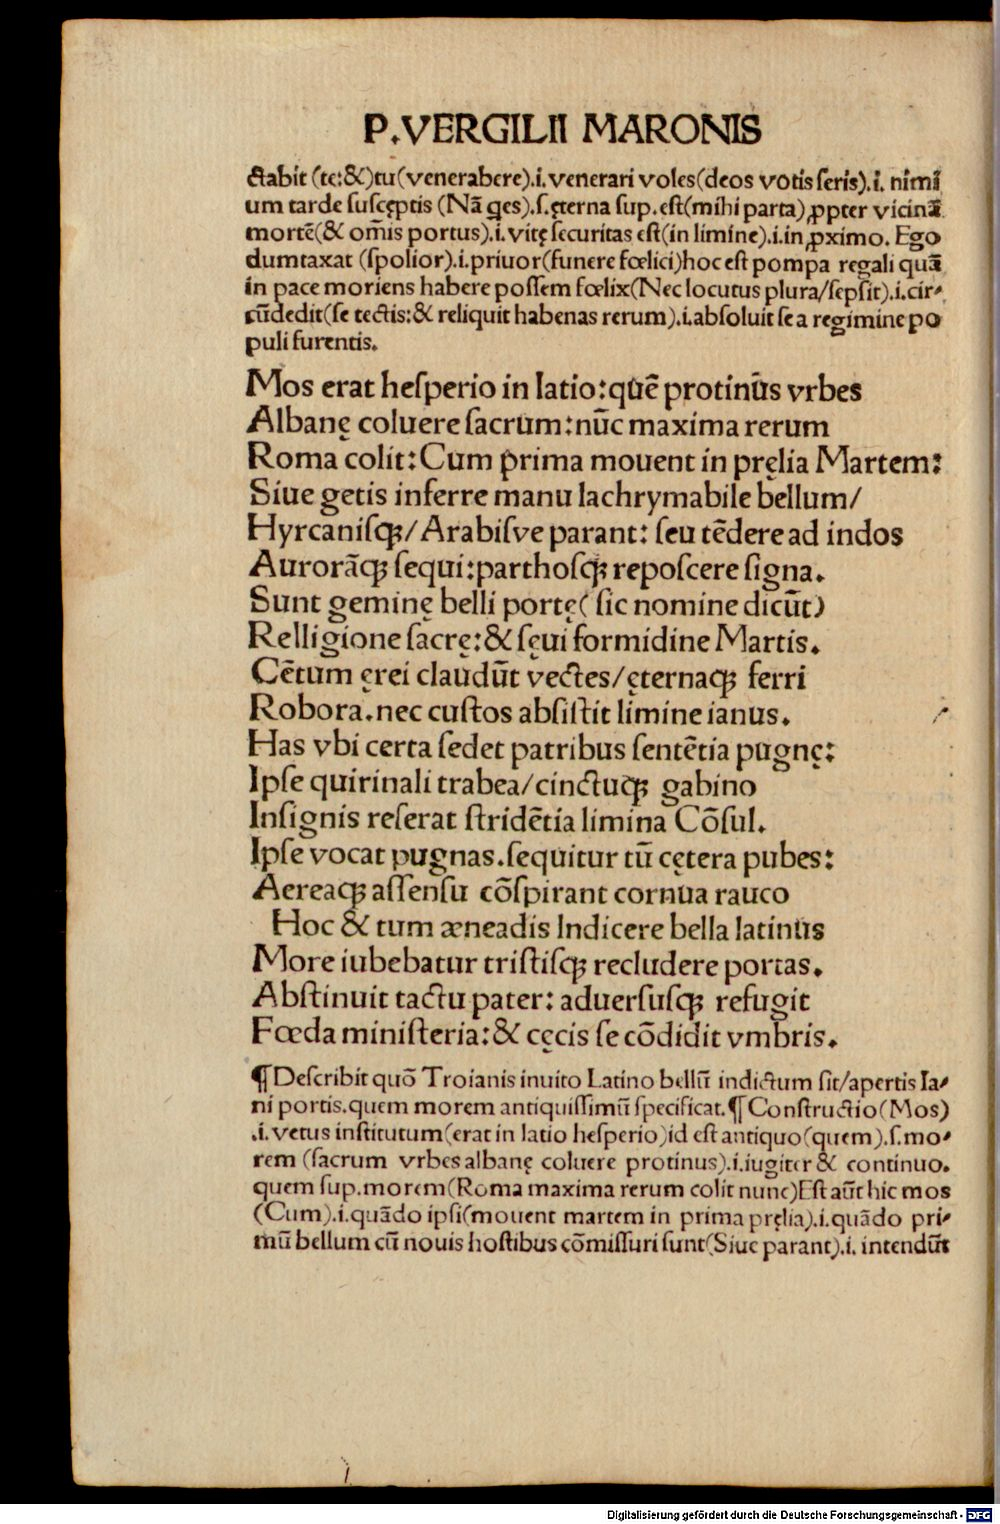 P.VERGILII MARONIS
ctabit (te:&)tu(venerabere).i.venerari voles(deos votis seris).i. nimi
um tarde suscęptis (Nā q̄es).s.ęterna sup.est(mihi parta)ꝓpter vicinā
mortē(& om̄is portus).i.vitę securitas est(in limine).i.in ꝓximo. Ego
dumtaxat (spolior).i.priuor(funere fœlici)hoc est pompa regali quā
in pace moriens habere possem fœlix(Nec locutus plura/sepsit).i.cir⸗
cūdedit(se tectis:& reliquit habenas rerum).i.absoluit se a regimine po
puli furentis.
Mos erat hesperio in latio:quē protinūs vrbes
Albanę coluere sacrum:nūc maxima rerum
Roma colit:Cum prima mouent in pręlia Martem:
Siue getis inferre manu lachrymabile bellum/
Hyrcanisqꝫ/Arabisve parant: seu tēdere ad indos
Aurorāqꝫ sequi:parthosqꝫ reposcere signa.
Sunt geminę belli portę( sic nomine dicūt)
Relligione sacrę:& sęui formidine Martis.
Cētum ęrei claudūt vectes/ęternaqꝫ ferri
Robora.nec custos absistit limine ianus.
Has vbi certa sedet patribus sentētia pugnę:
Ipse quirinali trabea/cinctuqꝫ gabino
Insignis reserat stridētia limina Cōsul.
Ipse vocat pugnas.sequitur tū cętera pubes:
Aereaqꝫ assensu cōspirant cornua rauco
Hoc & tum æneadis Indicere bella latinus
More iubebatur tristisqꝫ recludere portas.
Abstinuit tactu pater: aduersusqꝫ refugit
Fœda ministeria:& cęcis se cōdidit vmbris.
¶Describit quō Troianis inuito Latino bellū indictum sit/apertis Ia⸗
ni portis.quem morem antiquissimū specificat.¶Constructio(Mos)
.i.vetus institutum(erat in latio hesperio)id est antiquo(quem).s.mo⸗
rem (sacrum vrbes albanę coluere protinus).i.iugiter & continuo.
quem sup.morem(Roma maxima rerum colit nunc)Est aūt hic mos
(Cum).i.quādo ipsi(mouent martem in prima pręlia).i.quādo pri⸗
mū bellum cū nouis hostibus cōmissuri sunt(Siue parant).i. intendūt
Digitalisierung gefördert durch die Deutsche Forschungsgemeinschaft - DFG